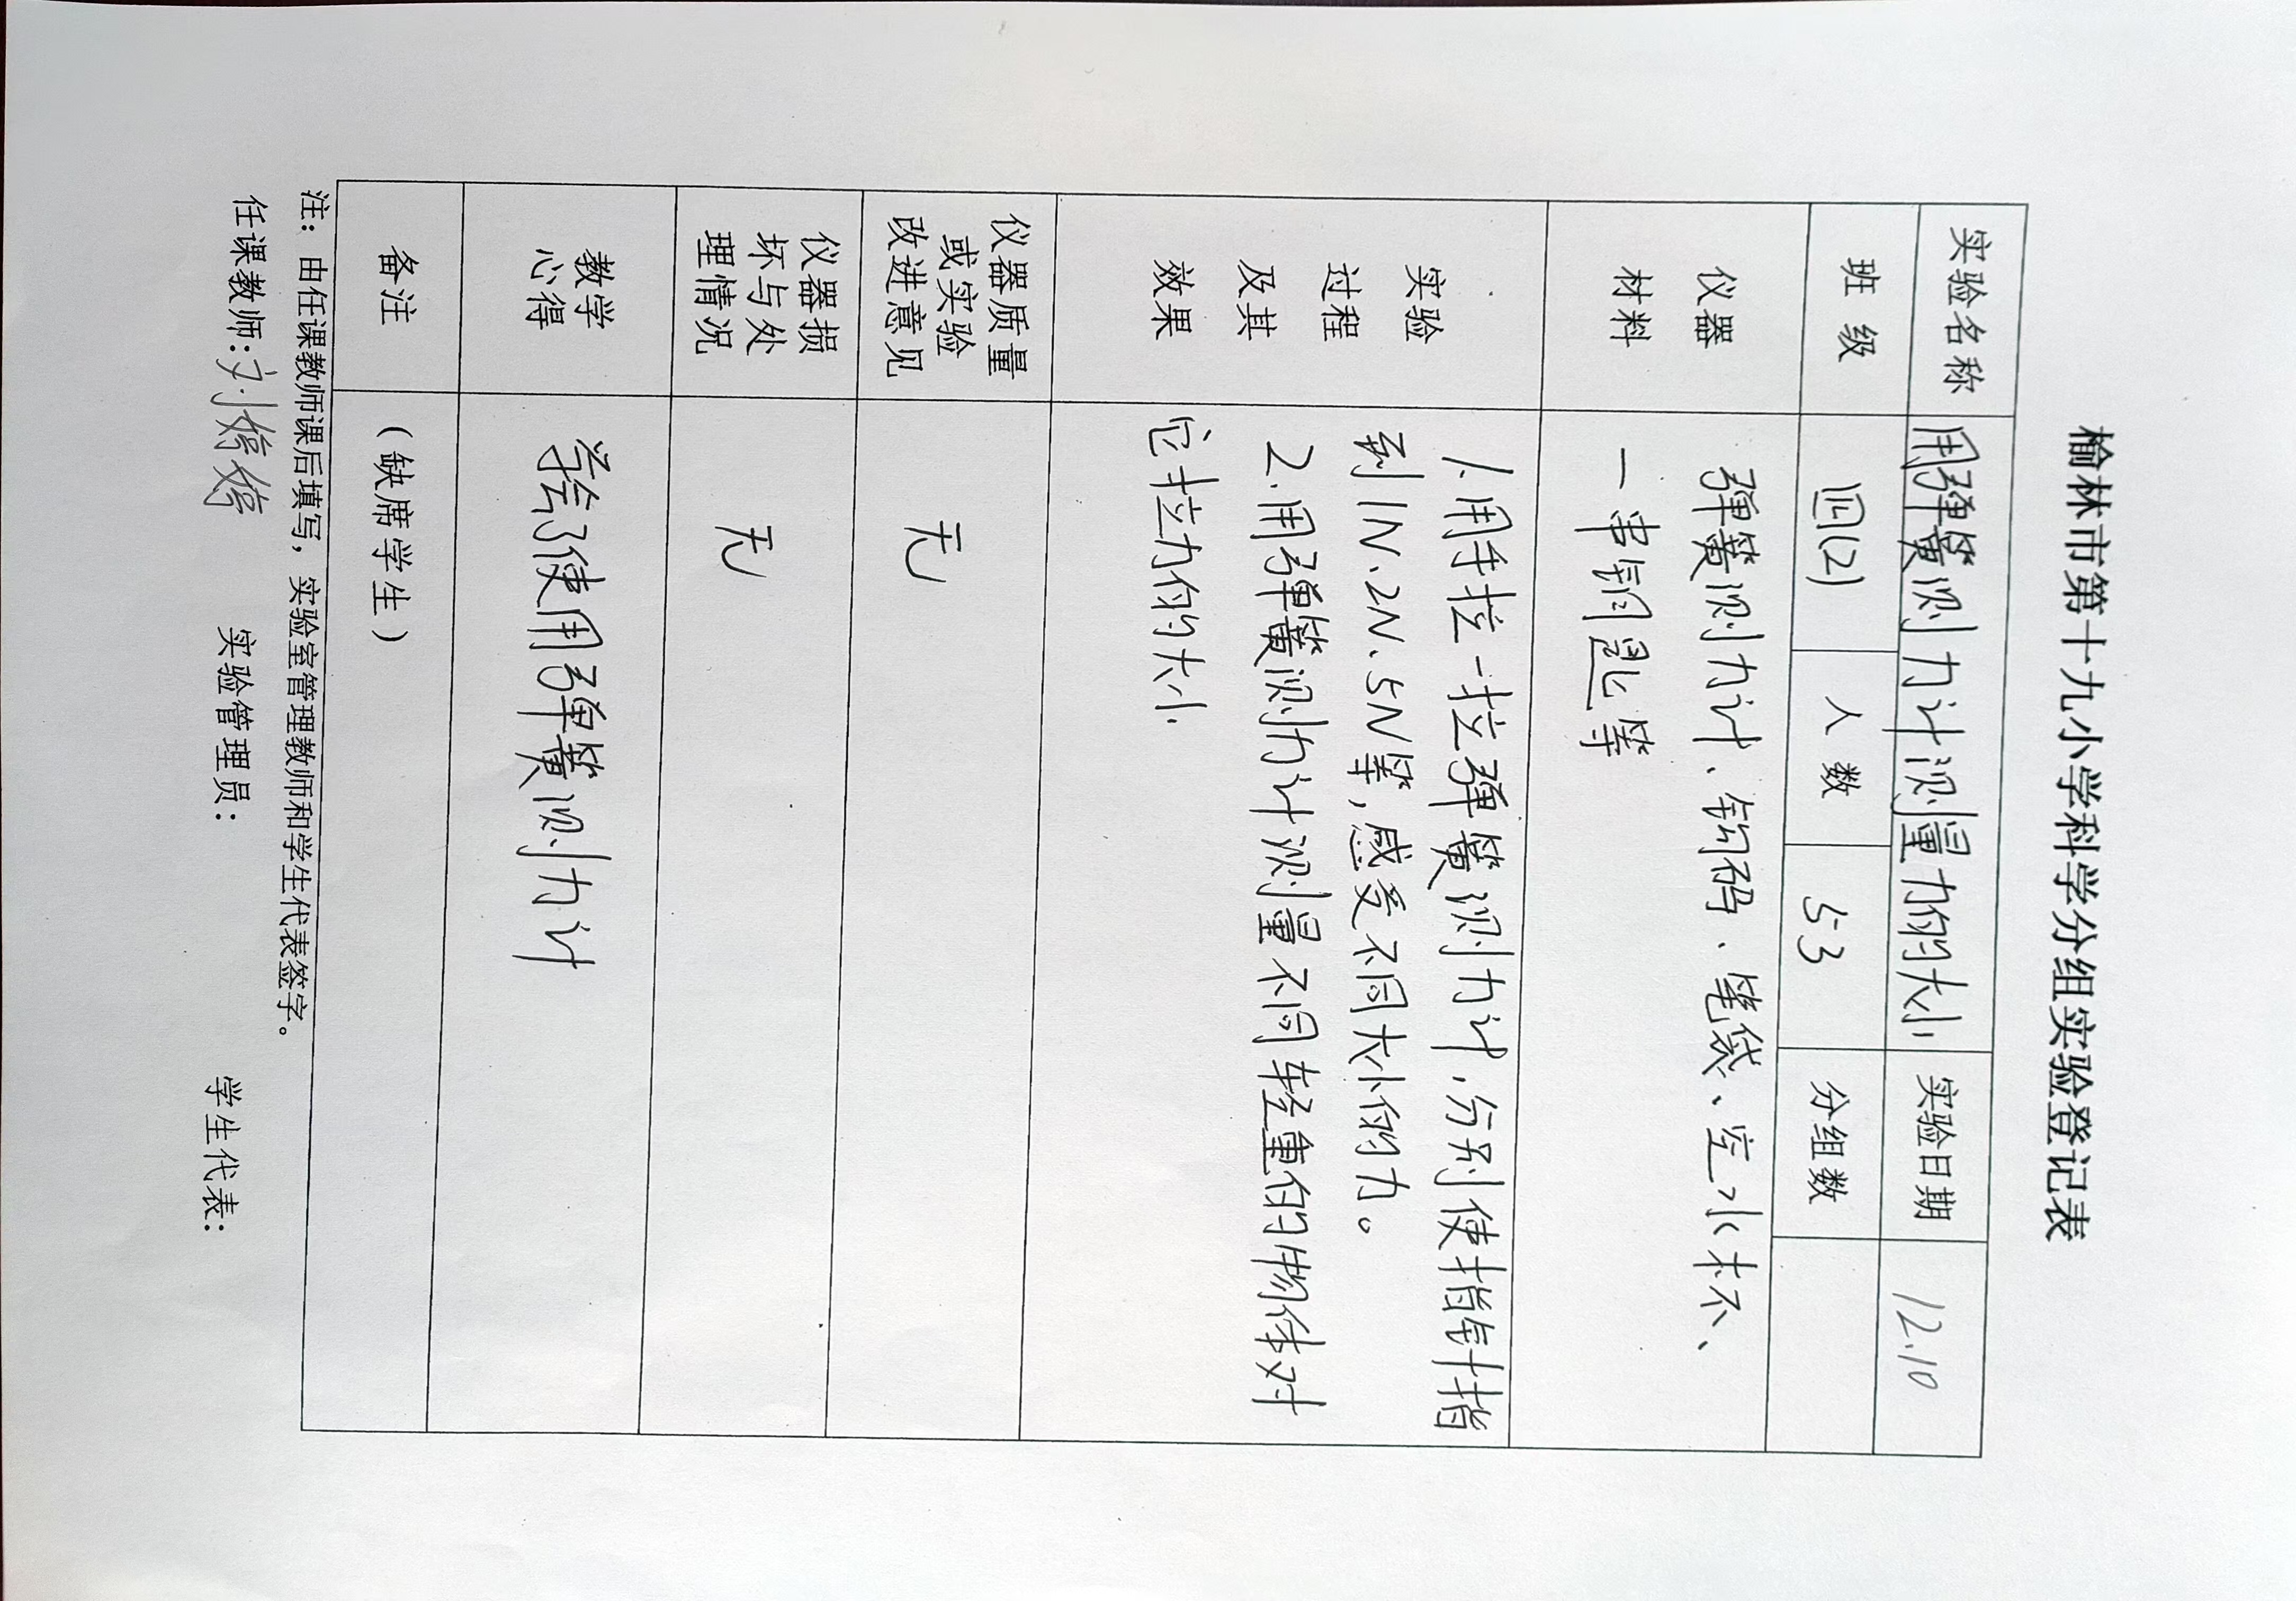 榆林市第十九小学科学分组实验登记表
实验名称 用弹簧测力计测量力的大小 实验日期 12.10
班 级 四(2) 人 数 53 分组数
仪器
材料
弹簧测力计、钩码、笔袋、空水杯、
一串钥匙等
实验
过程
及其
效果
1.用手拉一拉弹簧测力计,分别使指针指
到1N、2N、5N等,感受不同大小的力。
2.用弹簧测力计测量不同轻重的物体对
它拉力的大小
仪器质量
或实验
改进意见
无
仪器损
坏与处
理情况
无
教学
心得
学会了使用弹簧测力计
备注 (缺席学生)
注：由任课教师课后填写，实验室管理教师和学生代表签字。
任课教师:刘婷婷 实验管理员: 学生代表: